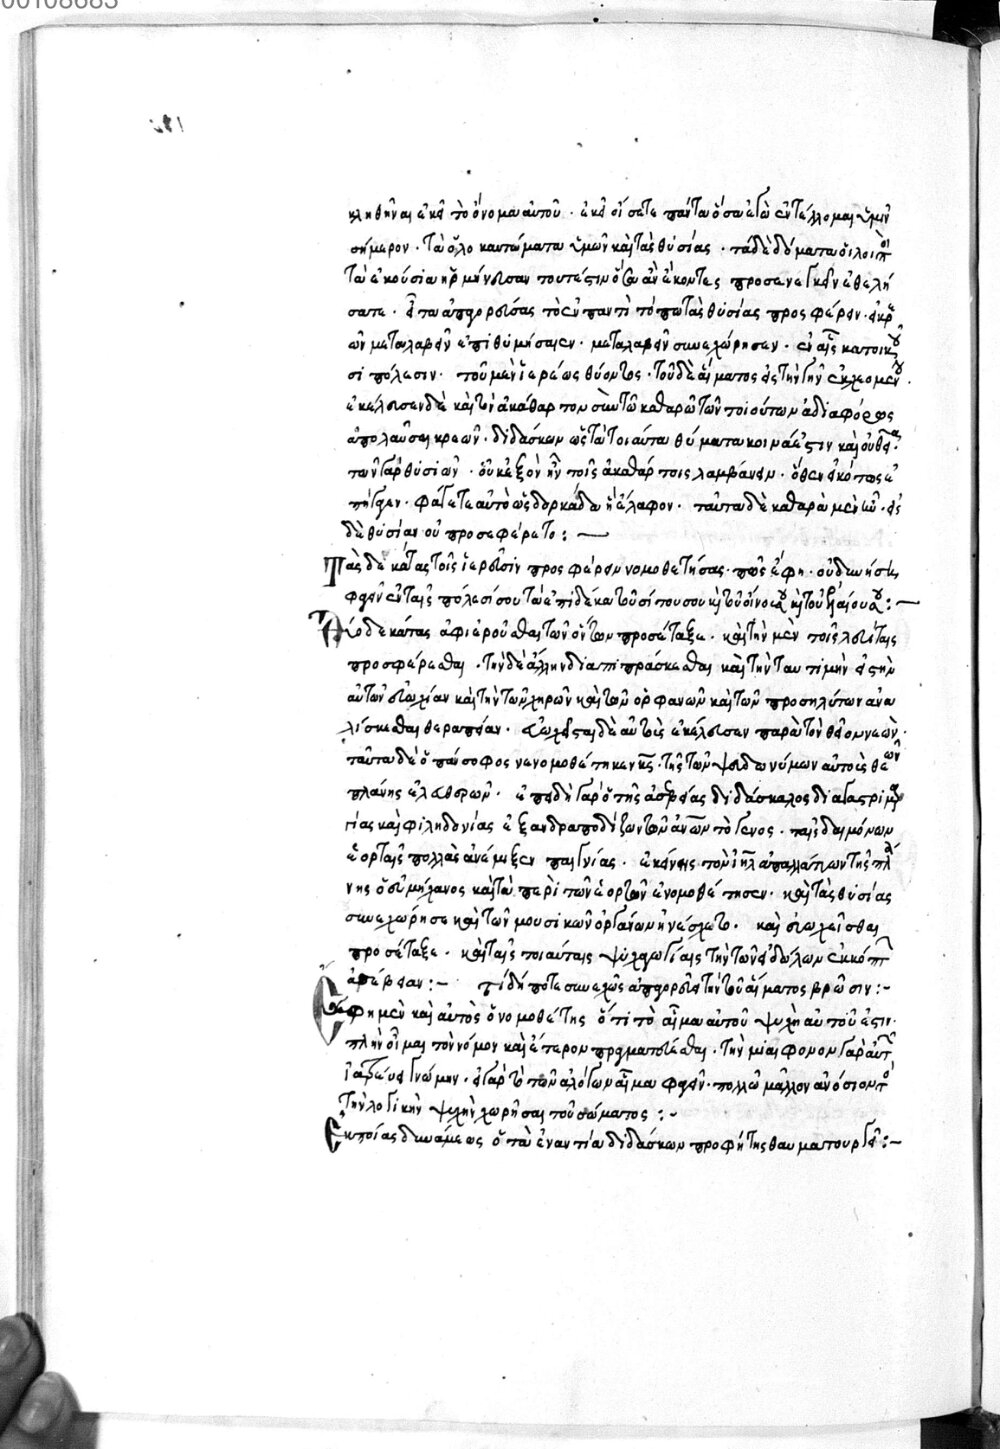 00108683
κληθῆναι ἐκεῖ τὸ ὄνομα αὐτοῦ · ἐκεῖ οἴσετε πάντα ὅσα ἐγὼ ἐντέλλομαι ὑμῖν
σήμερον · τὰ ὁλοκαυτώματα ὑμῶν καὶ τὰς θυσίας · τὰ δὲ δόματα οἱ λοιποὶ
τὰ ἑκούσια ἡρμήνευσαν τουτέστιν ὅσα ἂν ἑκόντες προσενεγκεῖν ἐθελή
σατε · εἶτα ἀπαγορεύσας τὸ ἐν παντὶ τόπω τὰς θυσίας προσφέρειν · ἐκ
ὧν μεταλαβεῖν ἐπιθυμήσαιεν · μεταλαβεῖν συνεχώρησεν · ἐν αἷς κατοικοῦ
σι πόλεσιν · τοῦ μὲν ἱερέως θύοντος · τοῦ δὲ αἵματος εἰς τὴν γῆν ἐκχεομένου ·
ἐκέλευσεν δὲ καὶ τὸν ἀκάθαρτον σὺν τῶ καθαρῶ τῶν τοιούτων ἀδιαφόρως
ἀπολαῦσαι κρεῶν · διδάσκων ὡς τὰ τοιαῦτα θύματα κοινά ἐστιν καὶ οὐ θεῖα ·
τῶν γὰρ θυσιῶν · οὐκ ἐξὸν ἦν τοῖς ἀκαθάρτοις λαμβάνειν · ὅθεν εἰκότως ἐ
πήγαγεν · φάγεται αὐτὸ ὡς δορκάδα ἢ ἔλαφον · ταῦτα δὲ καθαρὰ μὲν ὦν · εἰς
δὲ θυσίαν οὐ προσεφέρετο : —
Τὰς δεκάτας τοῖς ἱερεῦσιν προσφέρειν νομοθετήσας · πῶς ἔφη · οὐ δυνήση
φαγεῖν ἐν ταῖς πόλεσί σου τὰ ἐπιδέκατα τοῦ σίτου σου καὶ τοῦ οἴνου σου καὶ τοῦ ἐλαίου σου : —
Δύο δεκάτας ἀφιεροῦσθαι τῶν ὄντων προσέταξε · καὶ τὴν μὲν τοῖς λευίταις
προσφέρεσθαι · τὴν δὲ ἄλλην διαπιπράσκεσθαι καὶ τὴν ταύτης τιμὴν εἰς τὴν
αὐτῶν εὐωχίαν καὶ τὴν τῶν χηρῶν καὶ τῶν ὀρφανῶν καὶ τῶν προσηλύτων ἀνα
λίσκεσθαι θεραπείαν · εὐωχεῖσθαι δὲ αὐτοὺς ἐκέλευσεν παρὰ τὸν θεῖον νεών ·
ταῦτα δὲ ὁ πάνσοφος νενομοθέτηκεν κς · τῆς τῶν ψευδωνύμων αὐτοὺς θεῶν
πλάνης ἐλευθερῶν · ἐπειδὴ γὰρ ὁ τῆς ἀσεβείας διδάσκαλος διὰ γαστριμαρ
γίας καὶ φιληδονίας ἐξανδραποδίζων τῶν ἀνων τὸ γένος · ταῖς δαιμόνων
ἑορταῖς πολλὰς ἀνέμιξεν παιγνίας · ἐκείνης τὸν ιηλ ἀπαλλάττων τῆς πλά
νης ὁ εὐμήχανος καὶ τὰ περὶ τῶν ἑορτῶν ἐνομοθέτησεν · καὶ τὰς θυσίας
συνεχώρησε καὶ τῶν μουσικῶν ὀργάνων ἠνέσχετο · καὶ εὐωχεῖσθαι
προσέταξε · καὶ ταῖς τοιαύταις ψυχαγωγίαις τὴν τῶν εἰδώλων ἐκκόπτει
ἀσέβειαν : — τί δήποτε συνεχῶς ἀπαγορεύει τὴν τοῦ αἵματος βρῶσιν : —
Ἔφη μὲν καὶ αὐτὸς ὁ νομοθέτης ὅτι τὸ αἷμα αὐτοῦ ψυχὴ αὐτοῦ ἐστιν ·
πλὴν οἶμαι τὸν νόμον καὶ ἕτερον πραγματεύεσθαι · τὴν μιαιφόνον γὰρ αὐτῶν
ἰατρεύει γνώμην · εἰ γὰρ τὸ τῶν ἀλόγων αἷμα φαγεῖν · πολλῶ μᾶλλον ἀνόσιον τὸ
τὴν λογικὴν ψυχὴν χωρῆσαι τοῦ σώματος : —
Ἐκ ποίας δυνάμεως ὁ τὰ ἐναντία διδάσκων προφήτης θαυματουργεῖ : —